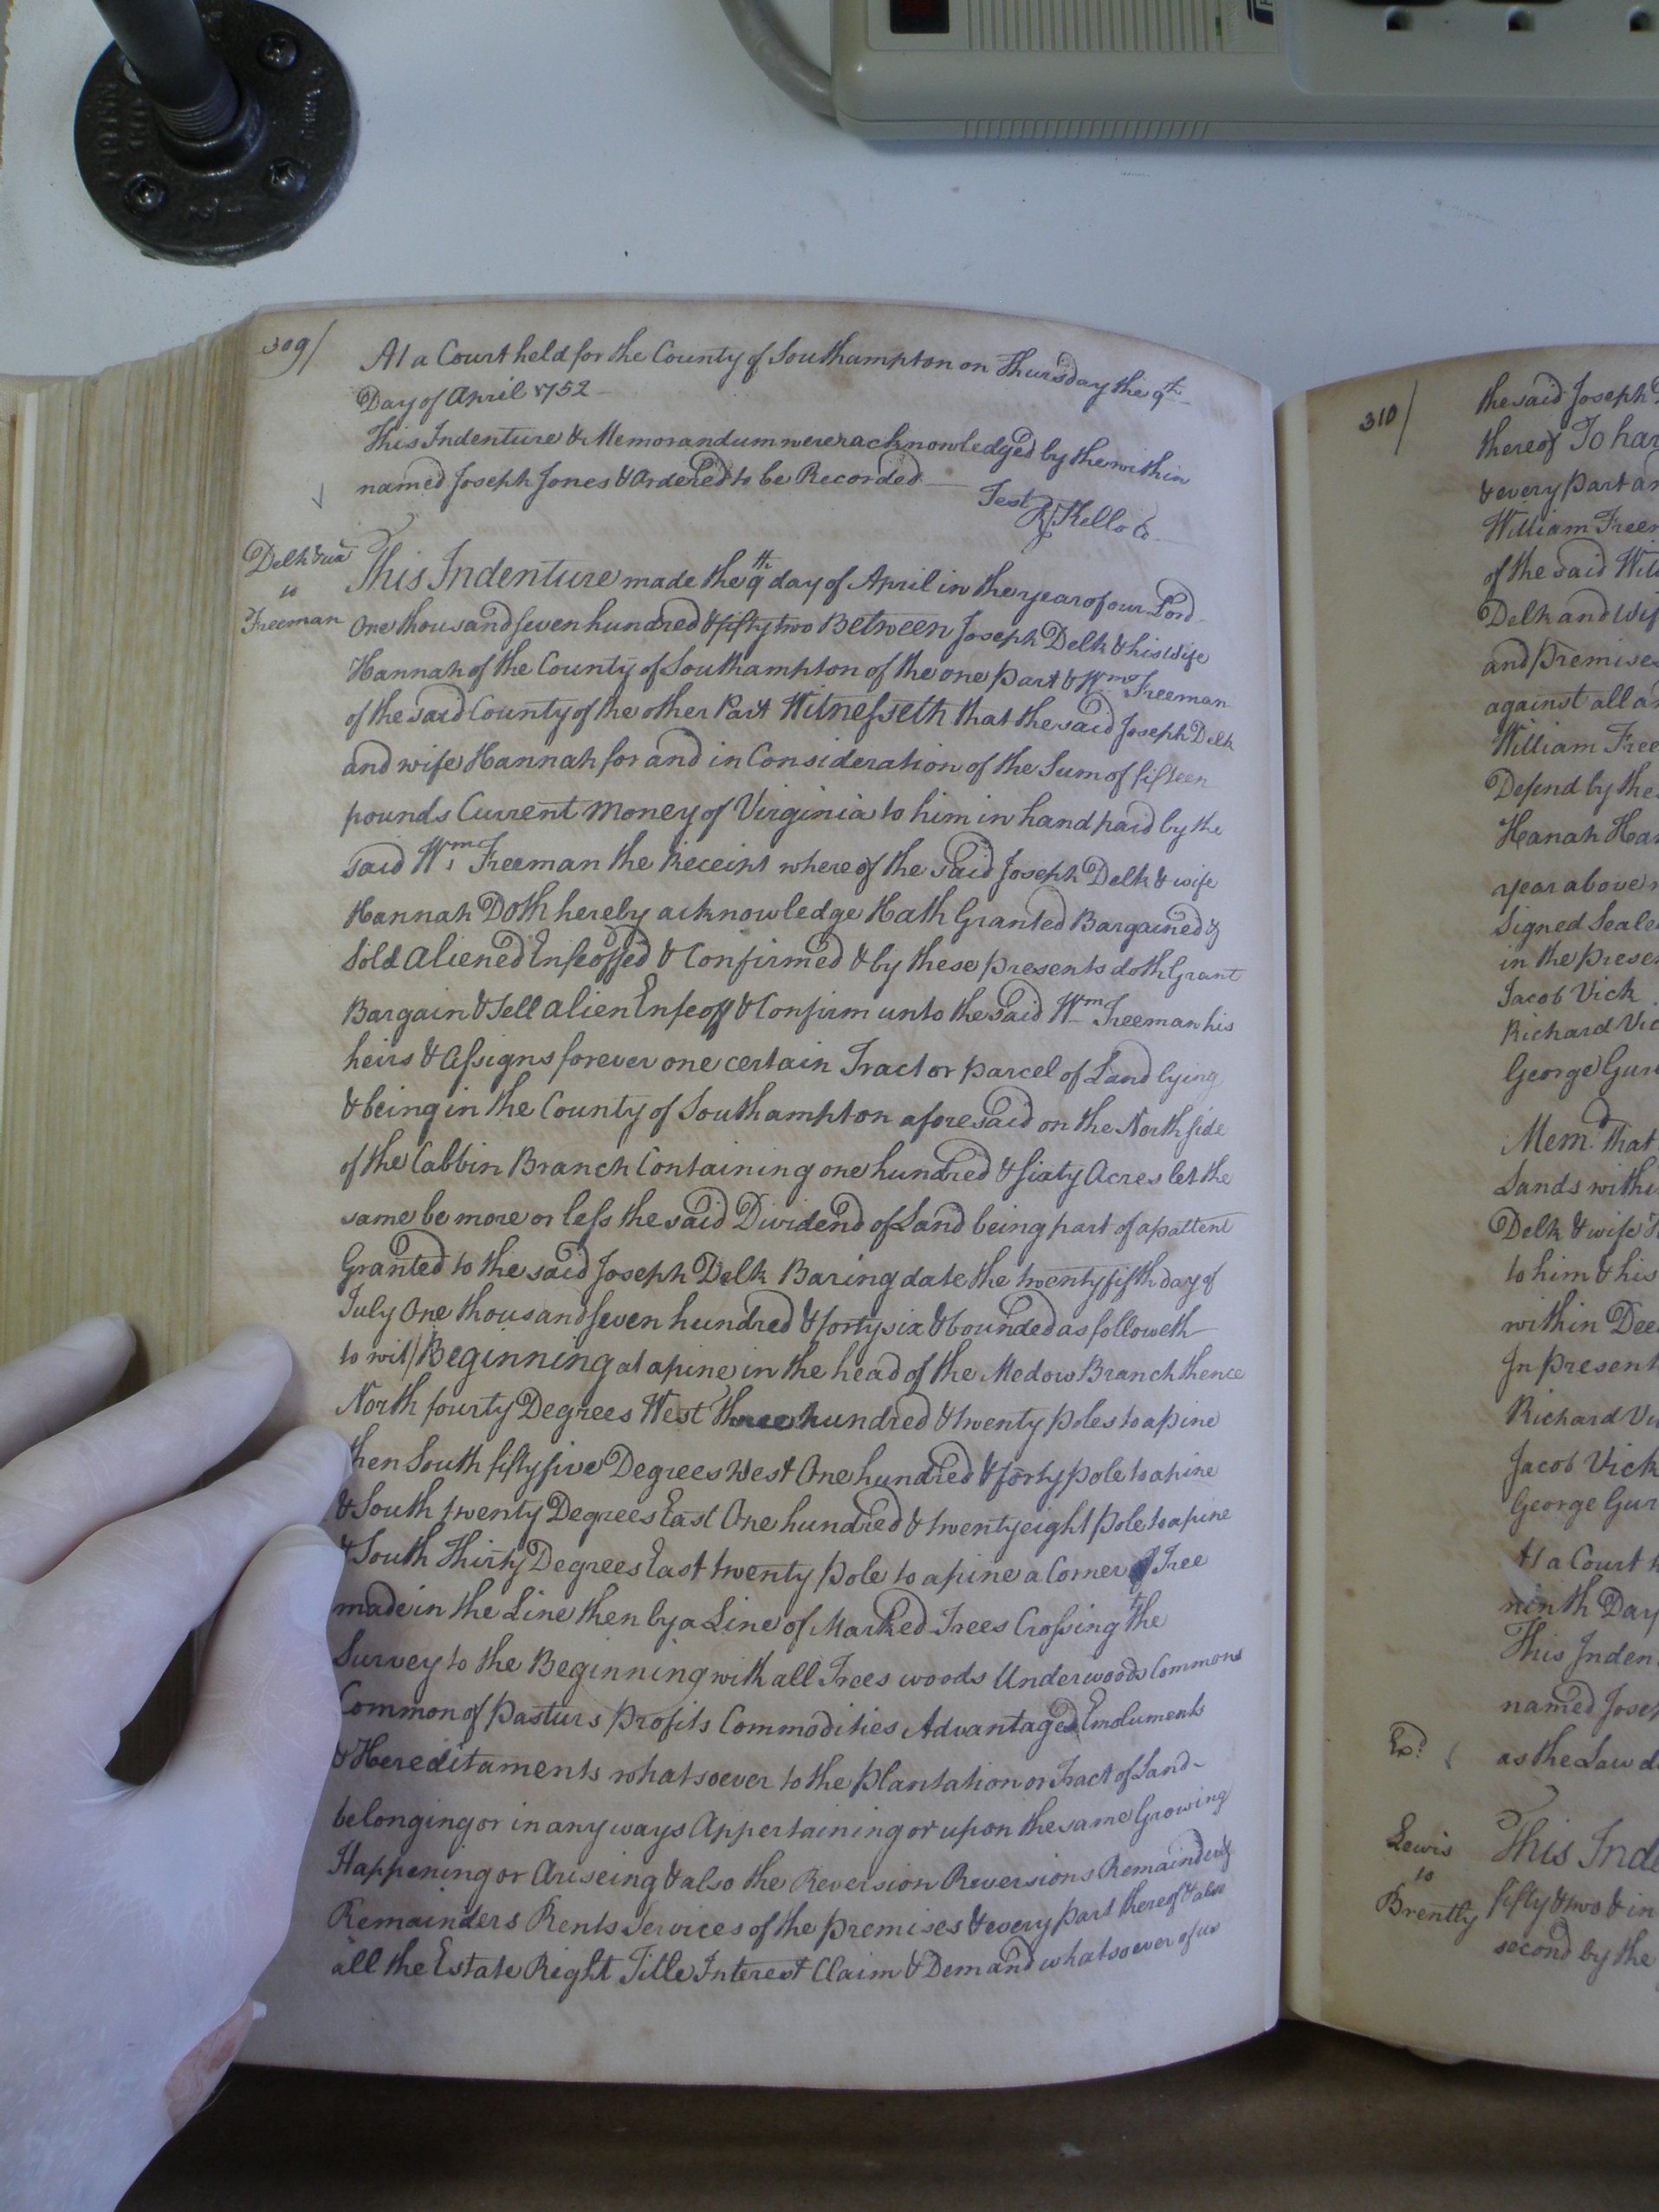 309/
At a Court held for the County of Southampton on Thursday the 9th
Day of April 1752
This Indenture & Memorandum were acknowledged by the within
named Joseph Jones & Ordered to be Recorded
Test
R Kello C
Delk & ux
to
Freeman
This Indenture made the 9th day of April in the year of our Lord
One thousand seven hundred & fifty two Between Joseph Delk & his wife
Hannah of the County of Southampton of the one part & Wm Freeman
of the said County of the other Part Witnesseth that the said Joseph Delk
and wife Hannah for and in Consideration of the Sum of fifteen
pounds Current Money of Virginia to him in hand paid by the
said Wm Freeman the Receipt whereof the said Joseph Delk & wife
Hannah Doth hereby acknowledge Hath Granted Bargained &
Sold Aliened Enfeoffed & Confirmed & by these presents doth Grant
Bargain & Sell Alien Enfeoff & Confirm unto the said Wm Freeman his
heirs & Assigns forever one certain Tract or parcel of Land lying
& being in the County of Southampton aforesaid on the North side
of the Cabbin Branch Containing one hundred & sixty Acres let the
same be more or less the said Dividend of Land being part of a pattent
Granted to the said Joseph Delk Baring date the twenty fifth day of
July One thousand seven hundred & forty six & bounded as followeth
to wit/ Beginning at a pine in the head of the Medow Branch thence
North fourty Degrees West Three hundred & twenty poles to a pine
then South fifty five Degrees West One hundred & forty pole to a pine
& South twenty Degrees East One hundred & twenty eight pole to a pine
& South Thirty Degrees East twenty pole to a pine a Corner Tree
made in the Line then by a Line of Marked Trees Crossing the
Survey to the Beginning with all Trees woods Underwoods Commons
Common of Pasturs Profits Commodities Advantages Emoluments
& Hereditaments whatsoever to the plantation or Tract of Land
belonging or in any ways Appertaining or upon the same Growing
Happening or Ariseing & also the Reversion Reversions Remainder &
Remainders Rents Services of the premises & every part thereof & also
all the Estate Right Title Interest Claim & Demand whatsoever of us
310/
the said Joseph
thereof To
& every part
William
of the said
Delk and
and premises
against all
William
Depend by the
Hanah
year above
Signed
in the
Jacob Vick
Richard
George
Mem.d That
Lands
Delk & wife
to him & his
within
In
Richard
Jacob Vick
George
At a Court
ninth Day
This
named
Ex.d
as the Law
Lewis
to
Brently
This
fifty & two & in
second by the